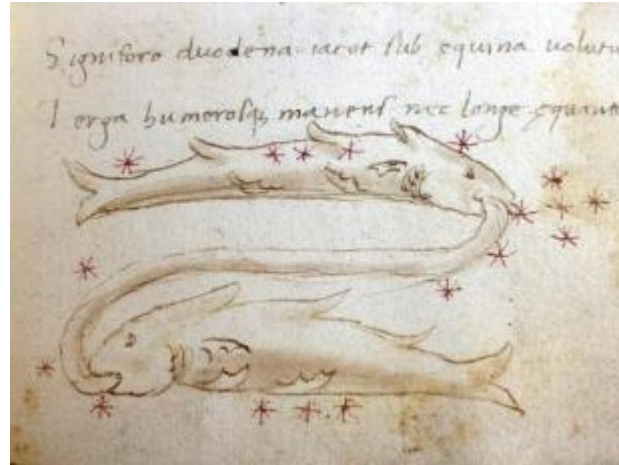 Signifero duodena iacet sub equina volut
Terga humerosq; manens nec longe equant